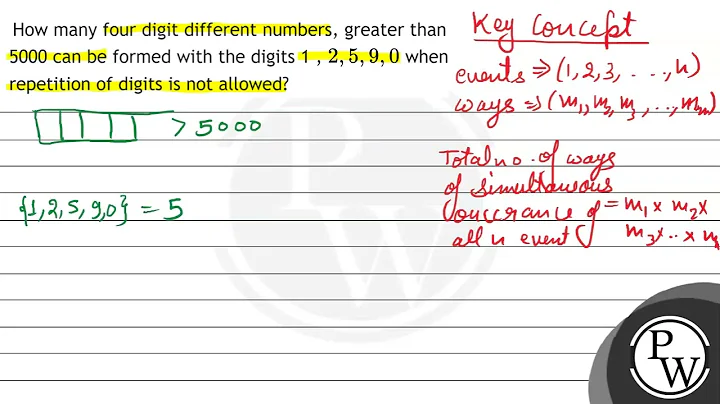 How many four digit different numbers, greater than
5000 can be formed with the digits 1 , 2, 5, 9, 0 when
repetition of digits is not allowed?
> 5000
{1,2,5,9,0} = 5
Key concept
events ⇒ (1, 2, 3, ..., n)
ways ⇒ (m₁, m₂, m₃, ..., mₙ)
Total no. of ways
of simultaneous
Occurrance of = m₁ × m₂ ×
all n event m₃ × .. × mₙ
P
W